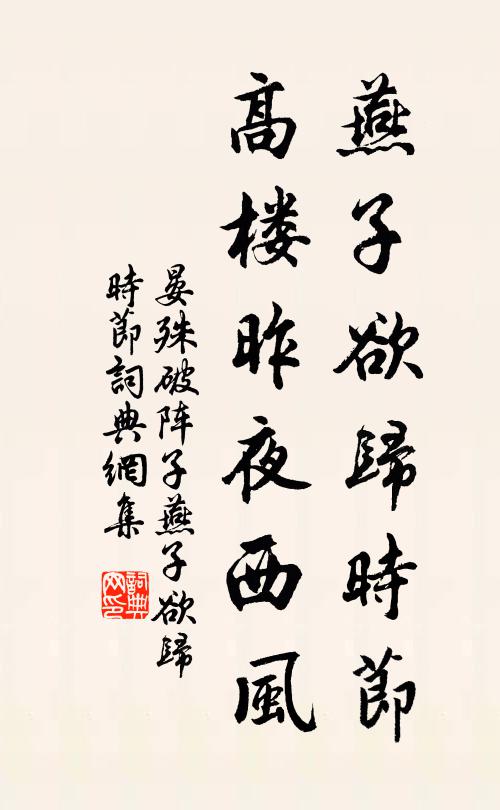 燕子欲歸時節
高楼昨夜西風
晏殊破阵子燕子欲歸
時節詞典網集
詞典
网印